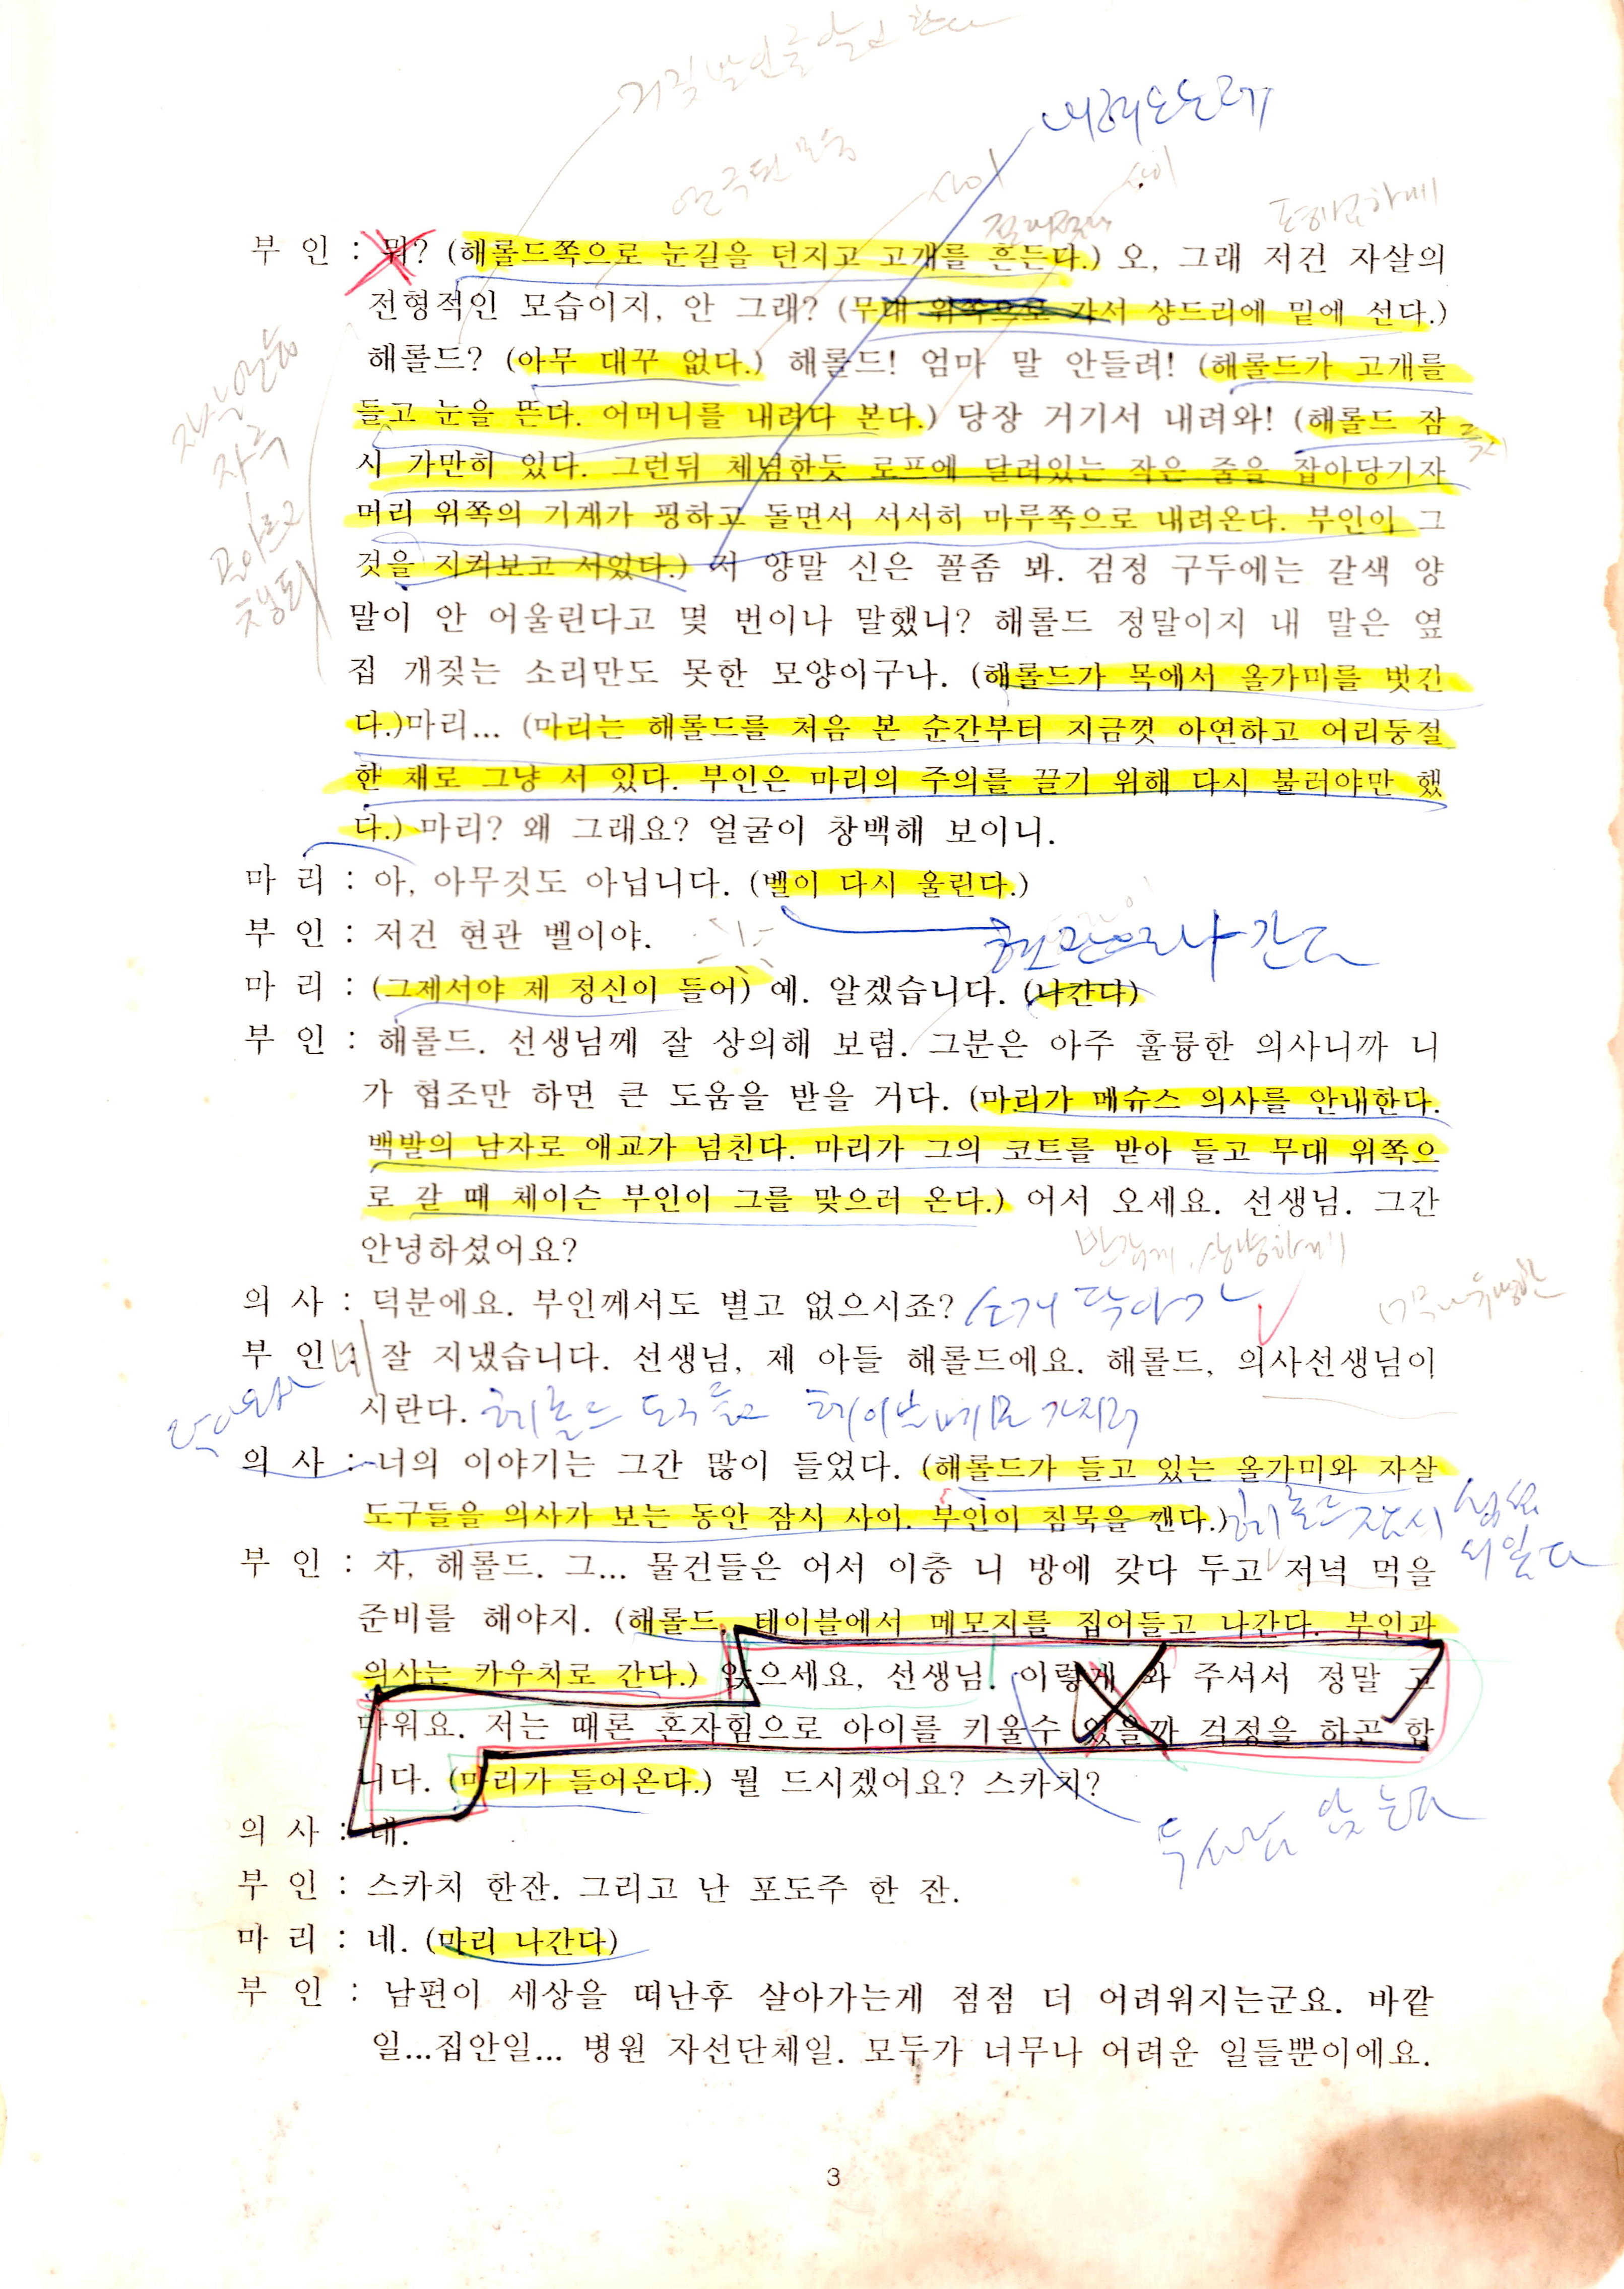 내려오는데
부 인 : 뭐? (해롤드쪽으로 눈길을 던지고 고개를 흔든다.) 오, 그래 저건 자살의
전형적인 모습이지, 안 그래? (무대 위쪽으로 가서 샹드리에 밑에 선다.)
해롤드? (아무 대꾸 없다.) 해롤드! 엄마 말 안들려! (해롤드가 고개를
들고 눈을 뜬다. 어머니를 내려다 본다.) 당장 거기서 내려와! (해롤드 잠
시 가만히 있다. 그런뒤 체념한듯 로프에 달려있는 작은 줄을 잡아당기자
머리 위쪽의 기계가 핑하고 돌면서 서서히 마루쪽으로 내려온다. 부인이 그
것을 지켜보고 서있다.) 저 양말 신은 꼴좀 봐. 검정 구두에는 갈색 양
말이 안 어울린다고 몇 번이나 말했니? 해롤드 정말이지 내 말은 옆
집 개짖는 소리만도 못한 모양이구나. (해롤드가 목에서 올가미를 벗긴
다.)마리... (마리는 해롤드를 처음 본 순간부터 지금껏 아연하고 어리둥절
한 채로 그냥 서 있다. 부인은 마리의 주의를 끌기 위해 다시 불러야만 했
다.) 마리? 왜 그래요? 얼굴이 창백해 보이니.
마 리 : 아, 아무것도 아닙니다. (벨이 다시 울린다.)
부 인 : 저건 현관 벨이야.
현관으로 나간다
마 리 : (그제서야 제 정신이 들어) 예. 알겠습니다. (나간다)
부 인 : 해롤드. 선생님께 잘 상의해 보렴. 그분은 아주 훌륭한 의사니까 니
가 협조만 하면 큰 도움을 받을 거다. (마리가 메슈스 의사를 안내한다.
백발의 남자로 애교가 넘친다. 마리가 그의 코트를 받아 들고 무대 위쪽으
로 갈 때 체이슨 부인이 그를 맞으러 온다.) 어서 오세요. 선생님. 그간
안녕하셨어요?
반갑게, 상냥하게
의 사 : 덕분에요. 부인께서도 별고 없으시죠?
부 인 : 잘 지냈습니다. 선생님, 제 아들 해롤드에요. 해롤드, 의사선생님이
시란다. 헤롤드 도구들고 테이블 메모 가지러
의 사 : 너의 이야기는 그간 많이 들었다. (해롤드가 들고 있는 올가미와 자살
도구들을 의사가 보는 동안 잠시 사이. 부인이 침묵을 깬다.) 헤롤드 잠시
부 인 : 자, 해롤드. 그... 물건들은 어서 이층 니 방에 갖다 두고 저녁 먹을
준비를 해야지. (해롤드, 테이블에서 메모지를 집어들고 나간다. 부인과
의사는 카우치로 간다.) 앉으세요, 선생님. 이렇게 와 주셔서 정말 고
마워요. 저는 때론 혼자힘으로 아이를 키울수 있을까 걱정을 하곤 합
니다. (마리가 들어온다.) 뭘 드시겠어요? 스카치?
두사람 앉는다
의 사 : 네.
부 인 : 스카치 한잔. 그리고 난 포도주 한 잔.
마 리 : 네. (마리 나간다)
부 인 : 남편이 세상을 떠난후 살아가는게 점점 더 어려워지는군요. 바깥
일...집안일... 병원 자선단체일. 모두가 너무나 어려운 일들뿐이에요.
3